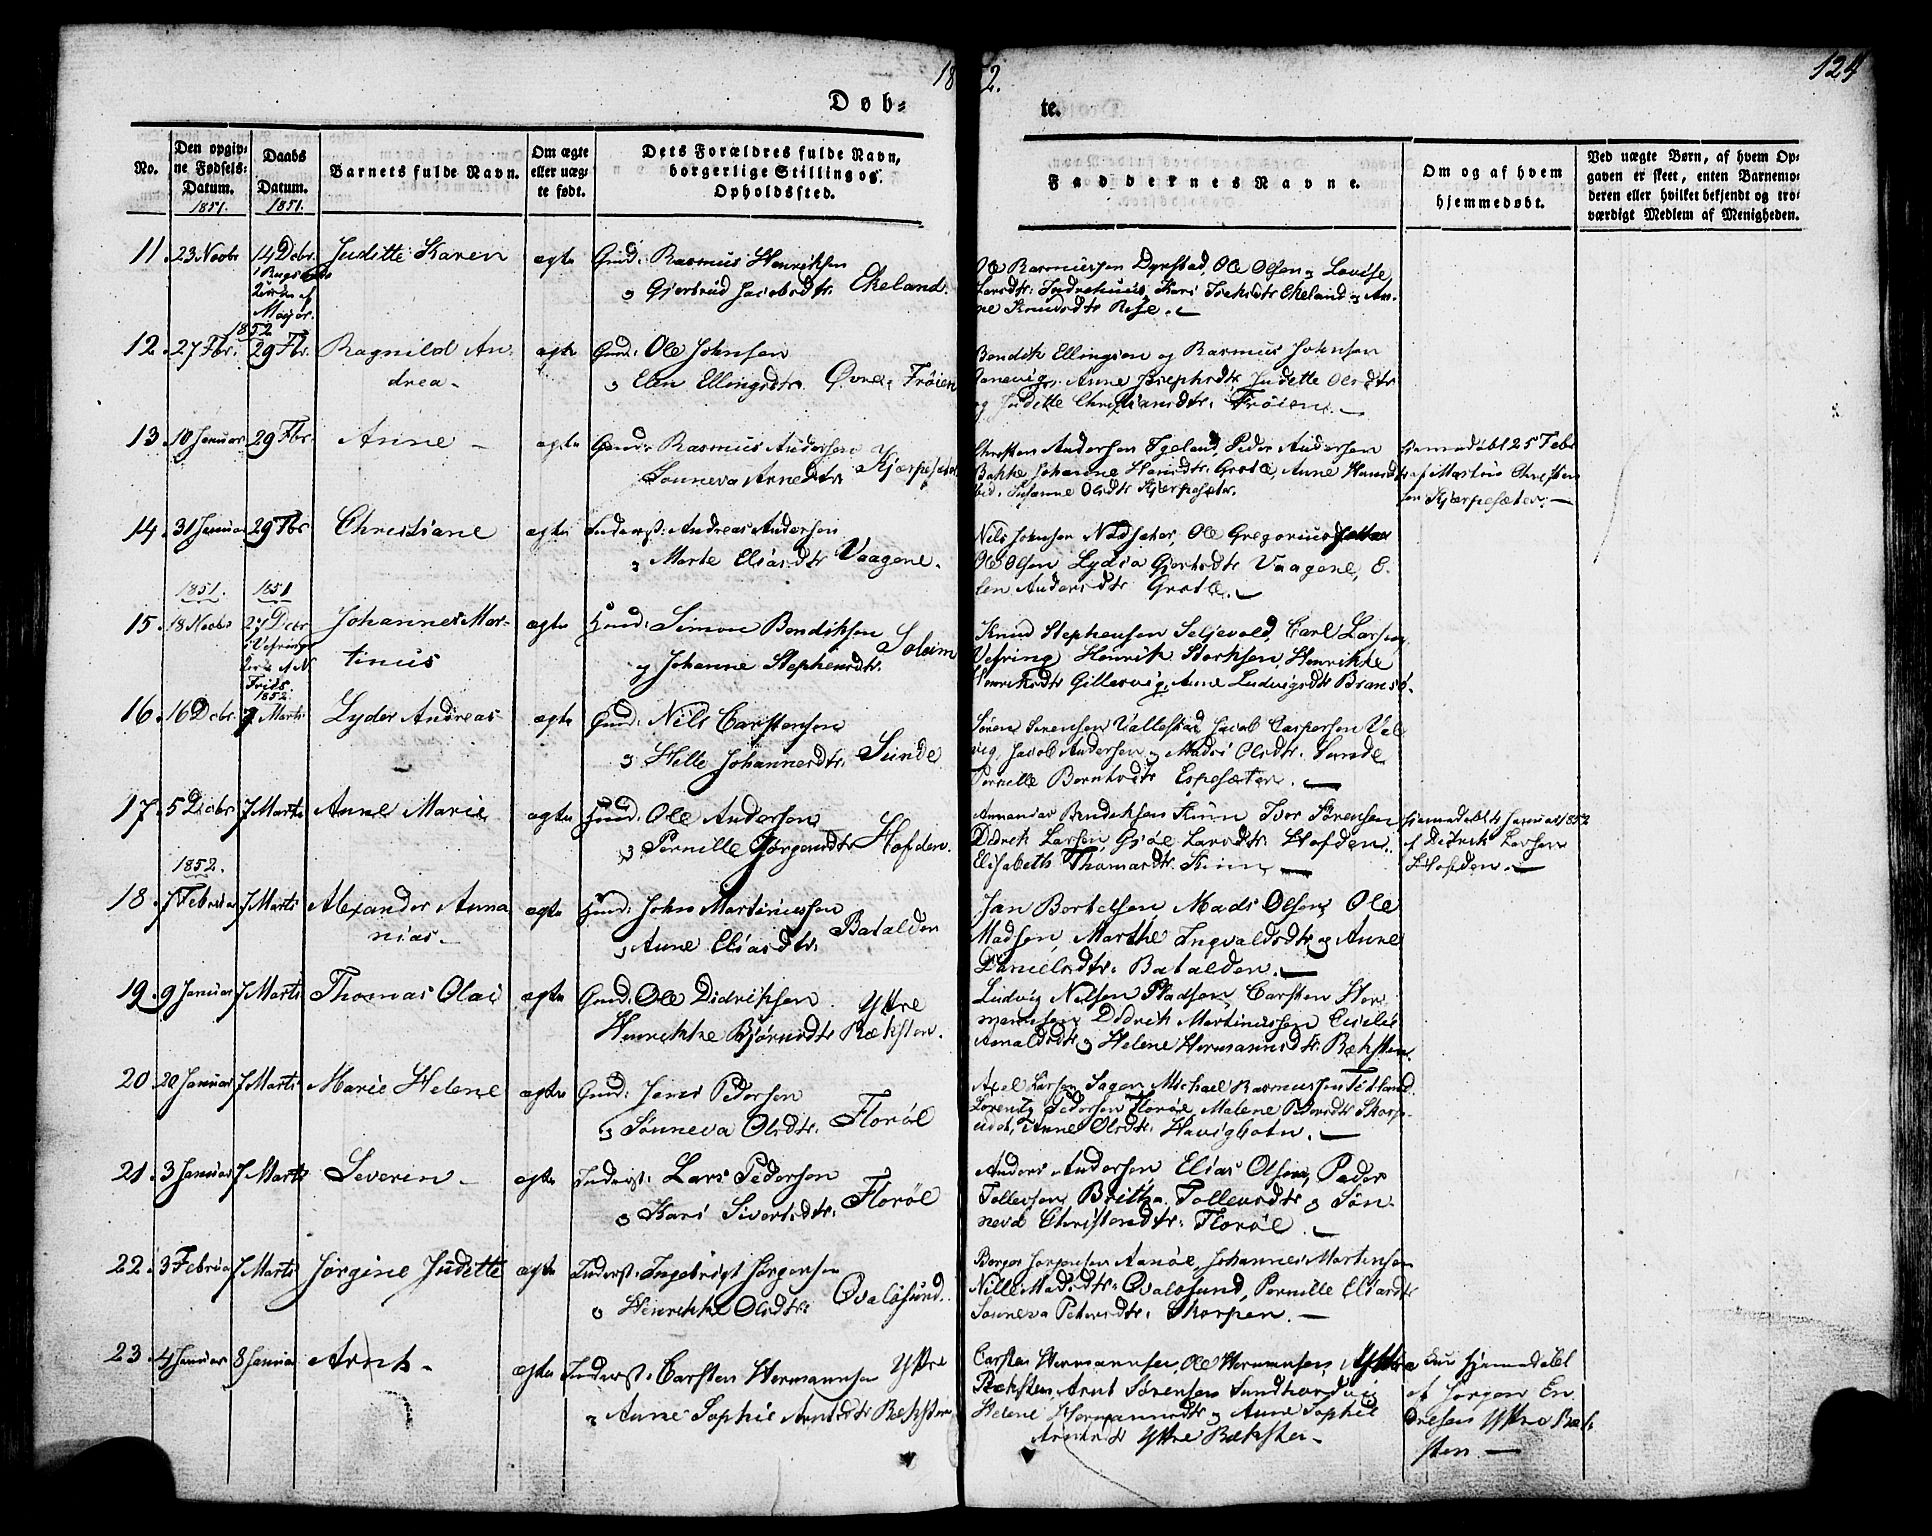 18 2. 124
Døb= te.
No.
Den opgiv=
ne Fødsels=
Datum.
1851.
Daabs
Datum.
1851.
Barnets fulde Navn.
Om ægte
eller uæg=
te født.
Dets Forældres fulde Navn,
borgerlige Stilling og
Opholdssted.
Faddernes Navne.
Om og af hvem
hjemmedøbt.
Ved uægte Børn, af hvem Op=
gaven er skeet, enten Barnemo=
deren eller hvilket bekjendt og tro=
værdigt Medlem af Menigheden.
11. 23 Novbr 14 Decbr Juditte Karen ægte Gmd: Rasmus Henriksen
Kirken af
Major.
Gjertrud Jacobsdtr. Ekeland.
Ole Rasmussen Dyrstad, Ole Olsen Lovise
Larsdtr. Indrehuus, Kari Ekeland og An-
ne Knudsdtr Rise.
1852
12. 27 Fbr. 29 Fbr. Ragnild An-
drea
ægte Gmd: Ole Johnsen
Elen Ellingsdtr. Øvre Frøien
Bendik Ellingsen og Rasmus Johnsen
Anne Josephsdtr, Juditte Olsdtr
og Juditte Christiansdtr. Frøien.
13. 10 Januar 29 Fbr. Anne ægte Gmd: Rasmus Andersen
Sønneva Arnedtr. Kjærpesæter
Christen Andersen Egeland, Peder Andersen
Bakke, Johanne Hansdtr. Grotle, Anne Hansdtr
Susanne Olsdtr Kjærpesæter.
Hjemmedøbt 25 Febr
af Martin Christen
sen Kjærpesæter.
14. 31 Januar 29 Fbr Christiane ægte Inderst: Andreas Andersen
Marte Eliasdtr Vaagene.
Nils Johnsen Nødsæter, Ole Gregoriussen
Ole Olsen Lydia Gjertsdtr Vaagene, E-
len Andersdtr Grotle.
1851. 1851
15. 18 Novbr 27 Decbr Johannes Mar-
tinus
i Vefring
Kirke af N
Friis.
ægte Huusmd: Simon Bendiksen
og Johanne Stephensdtr. Soleim
Knud Stephensen Seljevold, Carl Larsen
Vefring Henrik Henrikke
Henriksdtr Gillesvig, Anne Ludvigsdtr Bransø.
1852.
16. 16 Decbr. 7 Marts Lyder Andreas ægte Gmd: Nils Carstensen
Hille Johannesdtr. Sunde
Søren Sørensen Vallestad Jacob Caspersen Val
vig, Jacob Andersen Madsi Olsdtr. Sunde
Pernille Berntsdtr Espesæter.
17. 5 Decbr 7 Marts Anne Marie ægte Huusmd: Ole Andersen
Pernille Jørgensdtr Hofden.
Annanias Bendiksen Kinn Iver Sørensen
Didrik Larsen Gjøe Larsdtr. Hofden.
Elisabeth Thomasdtr. Kinn
Hjemmedøbt Januar 1852
af Didrik Larsen
Hofden.
1852.
18. 7 Februar 7 Marts Alexander Anna
nias.
ægte Huusmd: John Martinussen
Anne Eliasdtr. Batalden
Jan Bertelsen, Mads Olsen, Ole
Madsen, Marthe Ingvaldsdtr og Anne
Danielsdtr. Batalden.
19. 9 Januar 7 Marts Thomas Olai ægte Gmd: Ole Didriksen Yttre
Henrikke Bjørnsdtr Ræksten.
Ludvig Nilsen Stadsen, Carsten Her
mannsen Didrik Martinussen
Arnoldsdtr Helene Hermannsdtr. Ræksten.
20. 20 Januar 7 Marts Marie Helene ægte Gmd: Jens Pedersen
Sønneva Olsdtr. Florøl
Axel Larsen Sagen Michael Rasmussen
Lorentz Pedersen Florøl, Malene Pedersdtr Skorpe
Anne Olsdtr. Havigbotn.
21. 3 Januar 7 Marts Severin ægte Inderst: Lars Pedersen
Kari Sivertsdtr. Florøl
Anders Andersen, Elias Olsen, Peder
Tollefsen, Britha Tollevsdtr Søn-
neva Christensdtr. Florøl.
22. 3 Februar 7 Marts Jørgine Juditte ægte Inderst: Ingebrigt Jørgensen
Henrikke Olsdtr. Qvaløsund.
Børger Jørgensen Aarøl, Johannes Martensen
Nille Madsdtr. Qvaløsund, Pernille Eliasdtr
Sønneva Petersdtr. Skorpen.
23. 4 Januar 8 Januar Arnt ægte Inderst: Carsten Hermannsen Yttre
Anne Sophie Arntsdtr Ræksten
Carsten Hermannsen, Ole Hermannsen, Yttre
Ræksten Arnt Sørensen
Helene Hermannsdtr Anne Sophie
Arntsdtr Yttre Ræksten
hjemmedøbt
af Jørgen En
dresen Yttre Ræk
sten